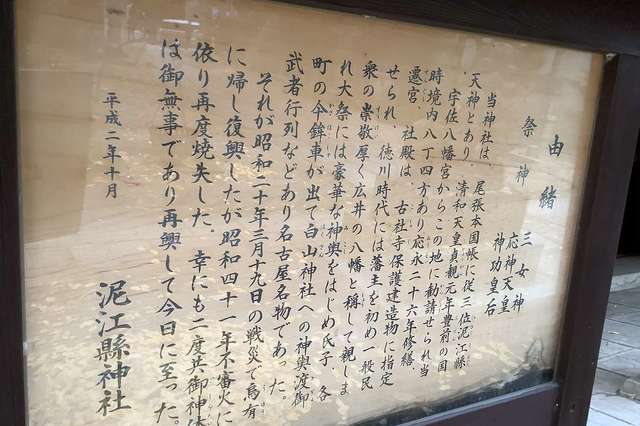 由緒
祭神 三女神
応神天皇
神功皇后
当神社は、尾張本国帳に従三位泥江縣
天神とあり、清和天皇貞観元年豊前の国
宇佐八幡宮からこの地に勧請せられ当
時境内八丁四方あり応永二十六年修繕、
遷宮、社殿は、古社寺保護建造物に指定
せられ、徳川時代には藩主を初め一般民
衆の崇敬厚く広井の八幡と称して親しま
れ大祭には豪華な神輿をはじめ氏子、各
町の今鉾車が出て白山神社への神輿渡御
武者行列などあり名古屋名物であった。
それが昭和二十年三月十九日の戦災で烏有
に帰し復興したが昭和四十一年不審火に
依り再度焼失した。幸にも二度共御神体
は御無事であり再興して今日に至った。
平成二年十月
泥江縣神社